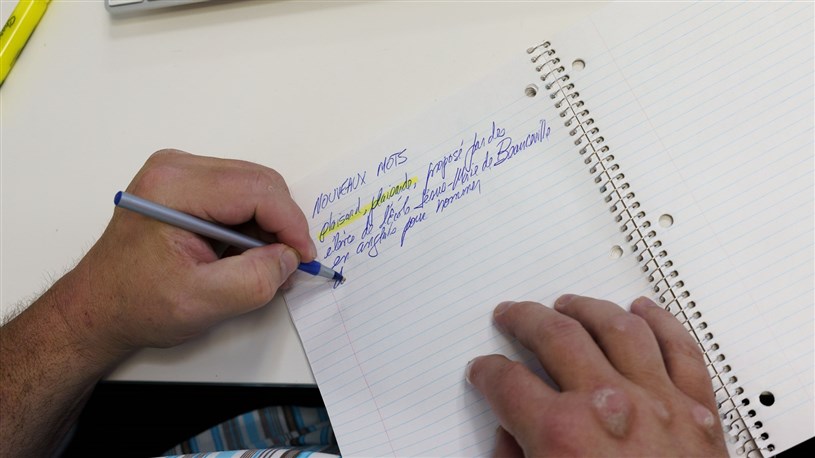 NOUVEAUX MOTS
plaisard, plaisarde, proposé par des
élèves de l'école Jésus-Marie de Beauceville
en anglais pour nommer